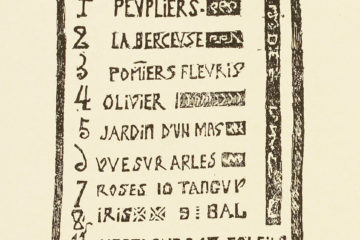 1 PEUPLIERS.
2 LA BERCEUSE
3 POMIERS FLEURIS
4 OLIVIER
5 JARDIN D'UN MAS
6 VUE SUR ARLES
7 ROSES 10 TANGUY
8 IRIS 9 BAL